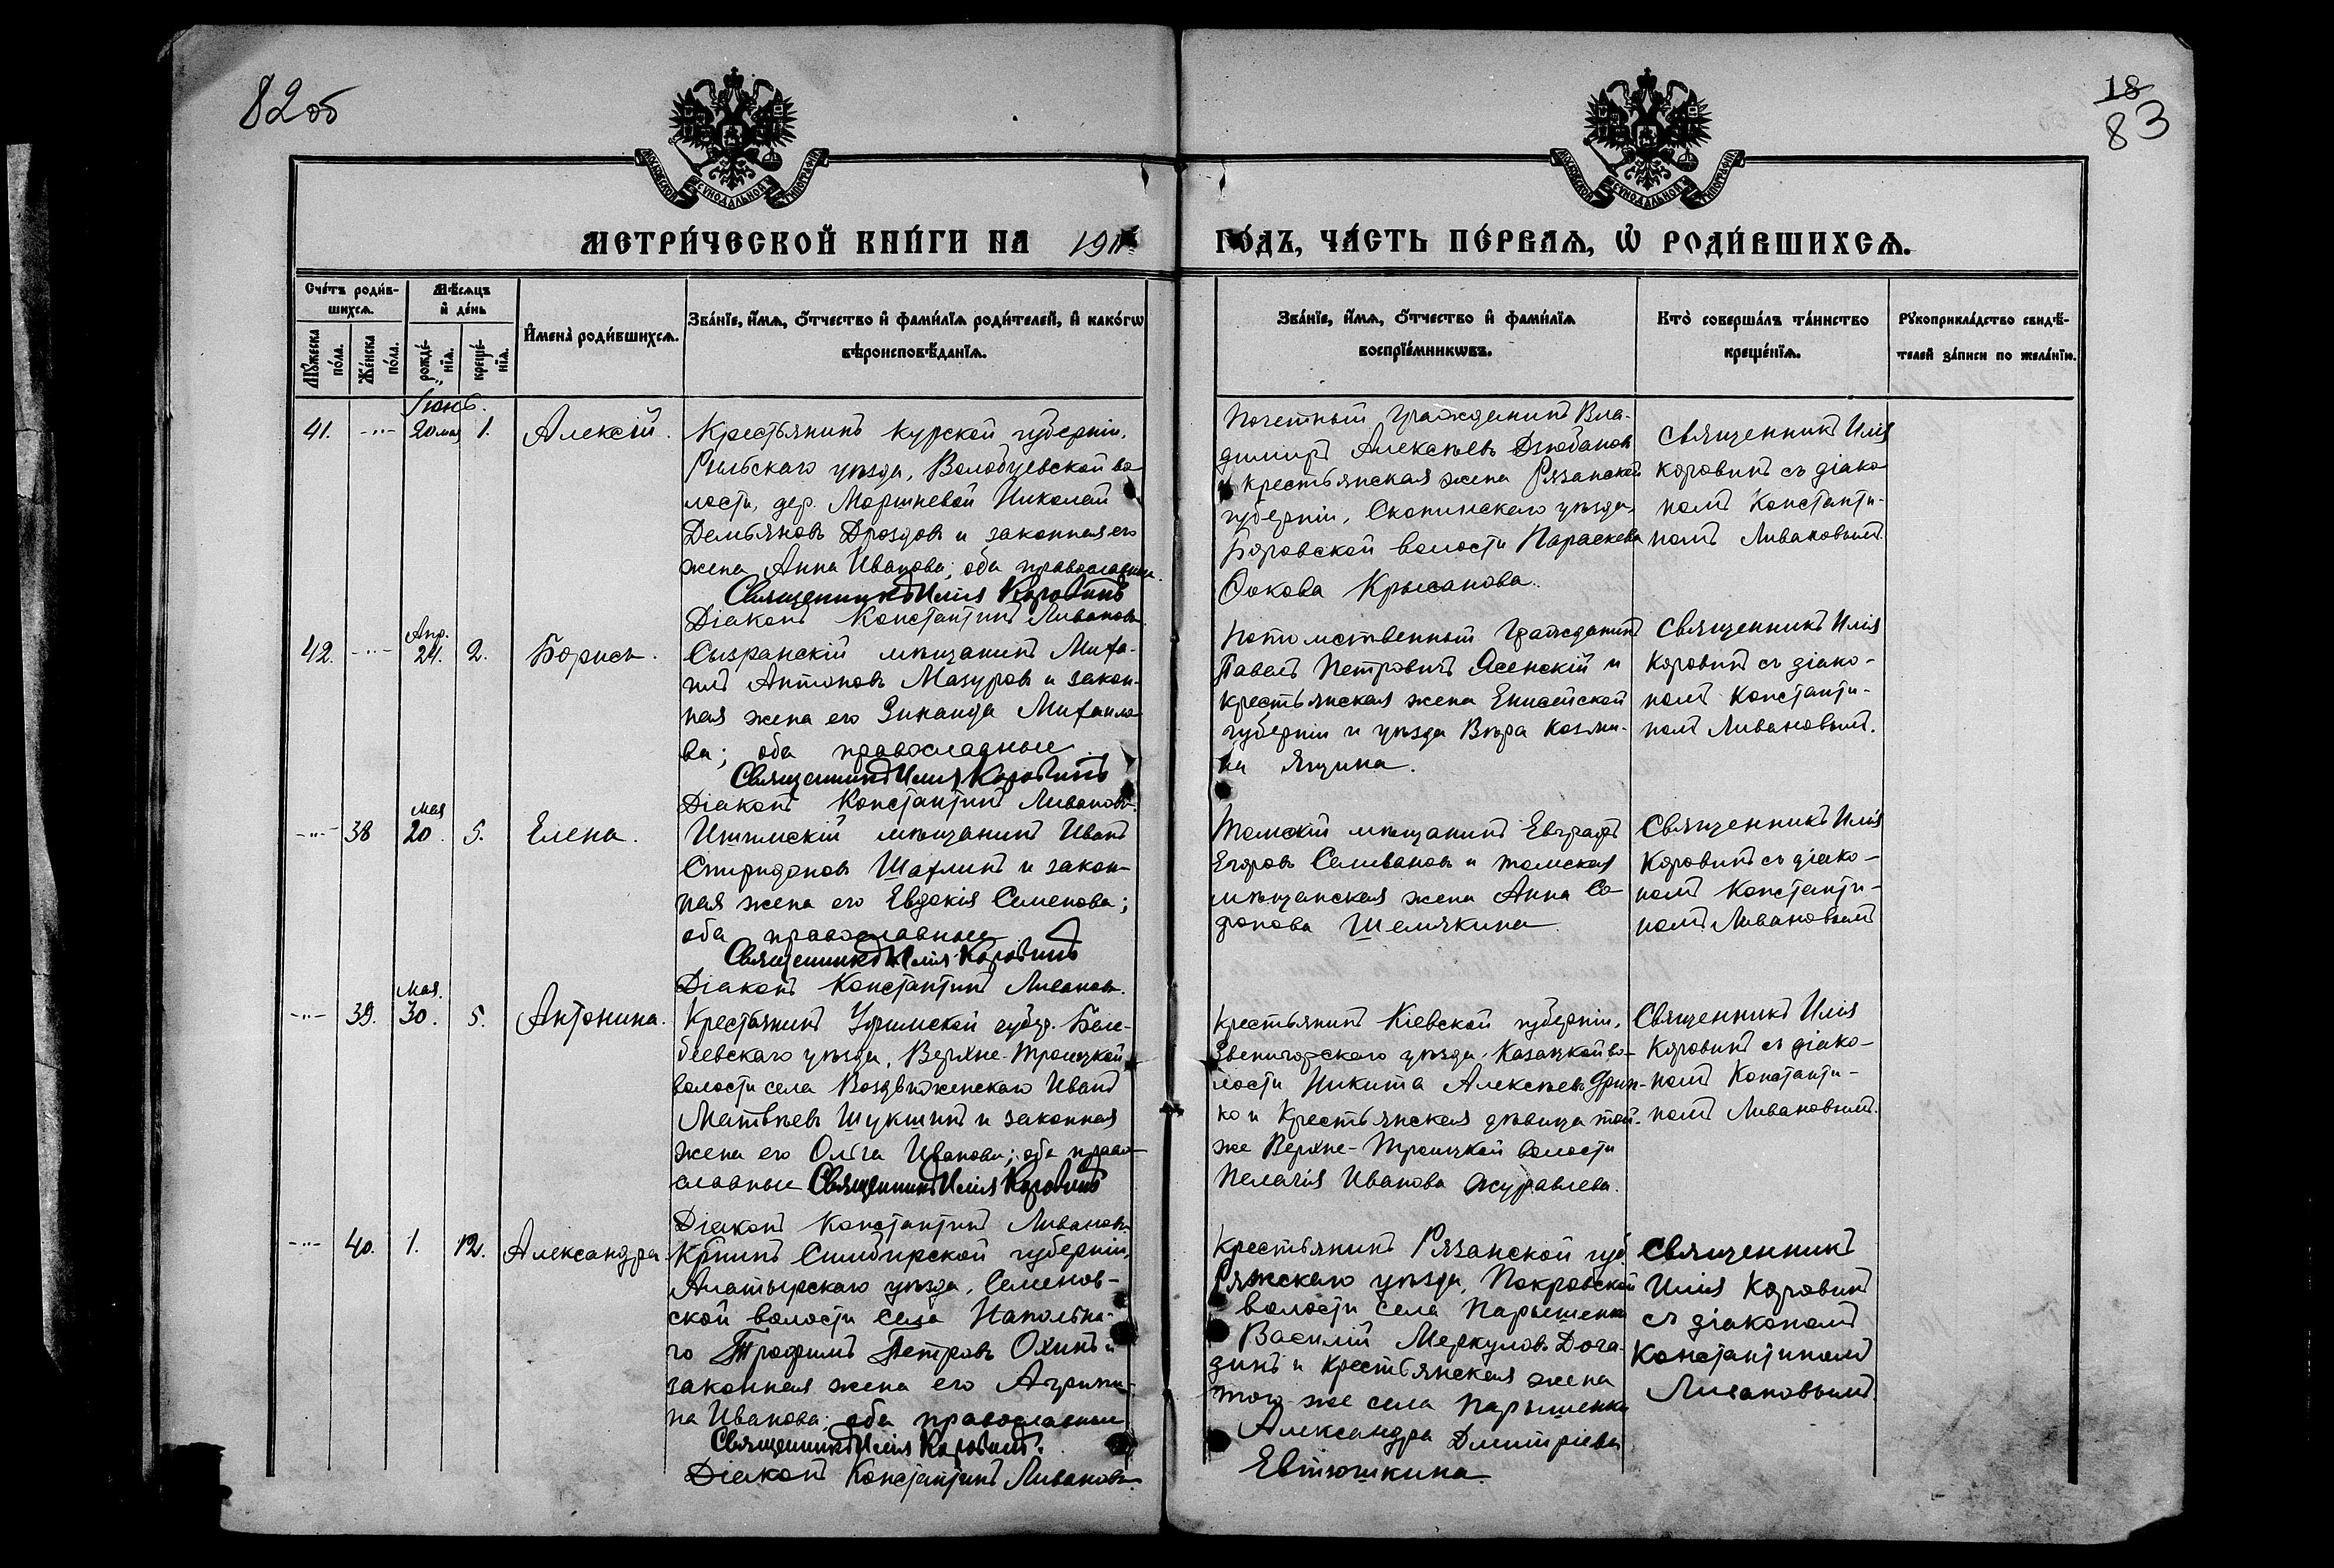 82 об
18
83
МОСКОВСКОЙ СѴНОДАЛЬНОЙ ТИПОГРАФІИ
МОСКОВСКОЙ СѴНОДАЛЬНОЙ ТИПОГРАФІИ
МЕТРИ́ЧЕСКОЙ КНИ́ГИ НА 191
ГО́ДЪ, ЧА́СТЬ ПЕ́РВАѦ, Ѡ҆ РОДИ́ВШИХСѦ.
Сче́тъ роди́в-
шихсѧ.
Мꙋ́жеска по́ла.
Же́нска по́ла.
Мѣ́сѧцъ и҆ де́нь
рожде́-нїѧ.
креще́-нїѧ.
И҆мена̀ роди́вшихсѧ.
Зва́нїе, и҆́мѧ, ѻ҆́тчество и҆ фами́лїѧ роди́телей, и҆ како́гѡ
вѣроисповѣ́данїѧ.
Зва́нїе, и҆́мѧ, ѻ҆́тчество и҆ фами́лїѧ
воспрїе́мникѡвъ.
Кто̀ соверша́лъ та́инство
креще́нїѧ.
Рꙋкоприкла́дство свидѣ́-
телей за́писи по жела́нїю.
Іюнь.
41. -"- 20 мая 1. Алексій.
Крестьянинъ Курской губерніи,
Рыльскаго уѣзда, Волобуевской во
лости, дер. Моршневой Николай
Демьяновъ Дроздовъ и законная его
жена Анна Иванова; оба православные.
Священникъ Илія Коровинъ
Діаконъ Константинъ Ливановъ.
Почетный Гражданинъ Вла-
димиръ Алексѣевъ Дзюбановъ
и крестьянская жена Рязанской
губерніи, Скопинскаго уѣзда,
Боровской волости Параскева
Фокова Крысанова.
Священникъ Илія
Коровинъ съ діако
номъ Константи-
номъ Ливановымъ.
Апр.
42. -"- 24. 2. Борисъ.
Сызранскій мѣщанинъ Миха-
илъ Антоновъ Мазуровъ и закон-
ная жена его Зинаида Михаило-
ва; оба православные
Священникъ Илія Коровинъ
Діаконъ Константинъ Ливановъ.
Потомственный Гражданинъ
Павелъ Петровичъ Ясенскій и
крестьянская жена Енисейской
губерніи и уѣзда Вѣра Козми-
на Ящина.
Священникъ Илія
Коровинъ съ діако-
номъ Константи-
номъ Ливановымъ.
мая
-"- 38 20. 5. Елена.
Ишимскій мѣщанинъ Иванъ
Спиридоновъ Шахлинъ и закон-
ная жена его Евдокія Семенова;
оба православные
Священникъ Илія Коровинъ
Діаконъ Константинъ Ливановъ.
Томскій мѣщанинъ Евграфъ
Егоровъ Селивановъ и томская
мѣщанская жена Анна Со-
фонова Шемякина
Священникъ Илія
Коровинъ съ діако-
номъ Константи-
номъ Ливановымъ
Мая.
-"- 39. 30. 5. Антонина.
Крестьянинъ Уфимской губер. Беле-
беевскаго уѣзда, Верхне-Троицкой
волости села Воздвиженскаго Иванъ
Матвѣевъ Шукшинъ и законная
жена его Ольга Иванова; оба право-
славные Священникъ Илія Коровинъ
Діаконъ Константинъ Ливановъ
Крестьянинъ Кіевской губерніи,
Звенигорскаго уѣзда, Казацкой во-
лости Никита Алексѣевъ
ко и Крестьянская дѣвица той-
же Верхне-Троицкой волости
Пелагія Иванова Журавлева.
Священникъ Илія
Коровинъ съ діако-
номъ Константи-
номъ Ливановымъ.
-"- 40. 1. 12. Александра.
Кр̅нинъ Симбирской губерніи,
Алатырскаго уѣзда, Семенов-
ской волости села Напольна-
го Трофимъ Петровъ Охинъ и
законная жена его Агриппи-
на Иванова; оба православные
Священникъ Илія Коровинъ.
Діаконъ Константинъ Ливановъ.
Крестьянинъ Рязанской губ.
Ряжскаго уѣзда, Покровской
волости села Нарышкина
Василій Меркуловъ Дога-
динъ и Крестьянская жена
того же села Нарышкина
Александра Димитріева
Евтюшкина.
Священникъ
Илія Коровинъ
съ діакономъ
Константиномъ
Ливановымъ.